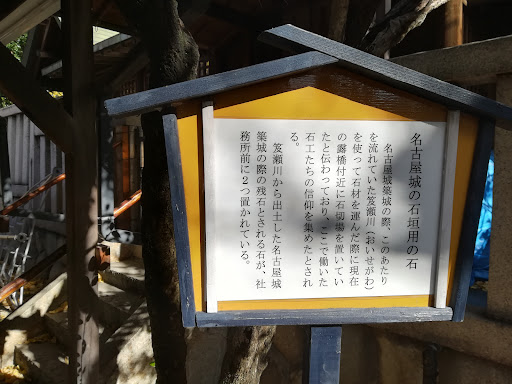 名古屋城の石垣用の石
名古屋城築城の際、このあたり
を流れていた笈瀬川（おいせがわ）
を使って石材を運んだ際に現在
の露橋付近に石切場を置いてい
たと伝わっており、ここで働いた
石工たちの信仰を集めたとされ
る。
笈瀬川から出土した名古屋城
築城の際の残石とされる石が、社
務所前に２つ置かれている。